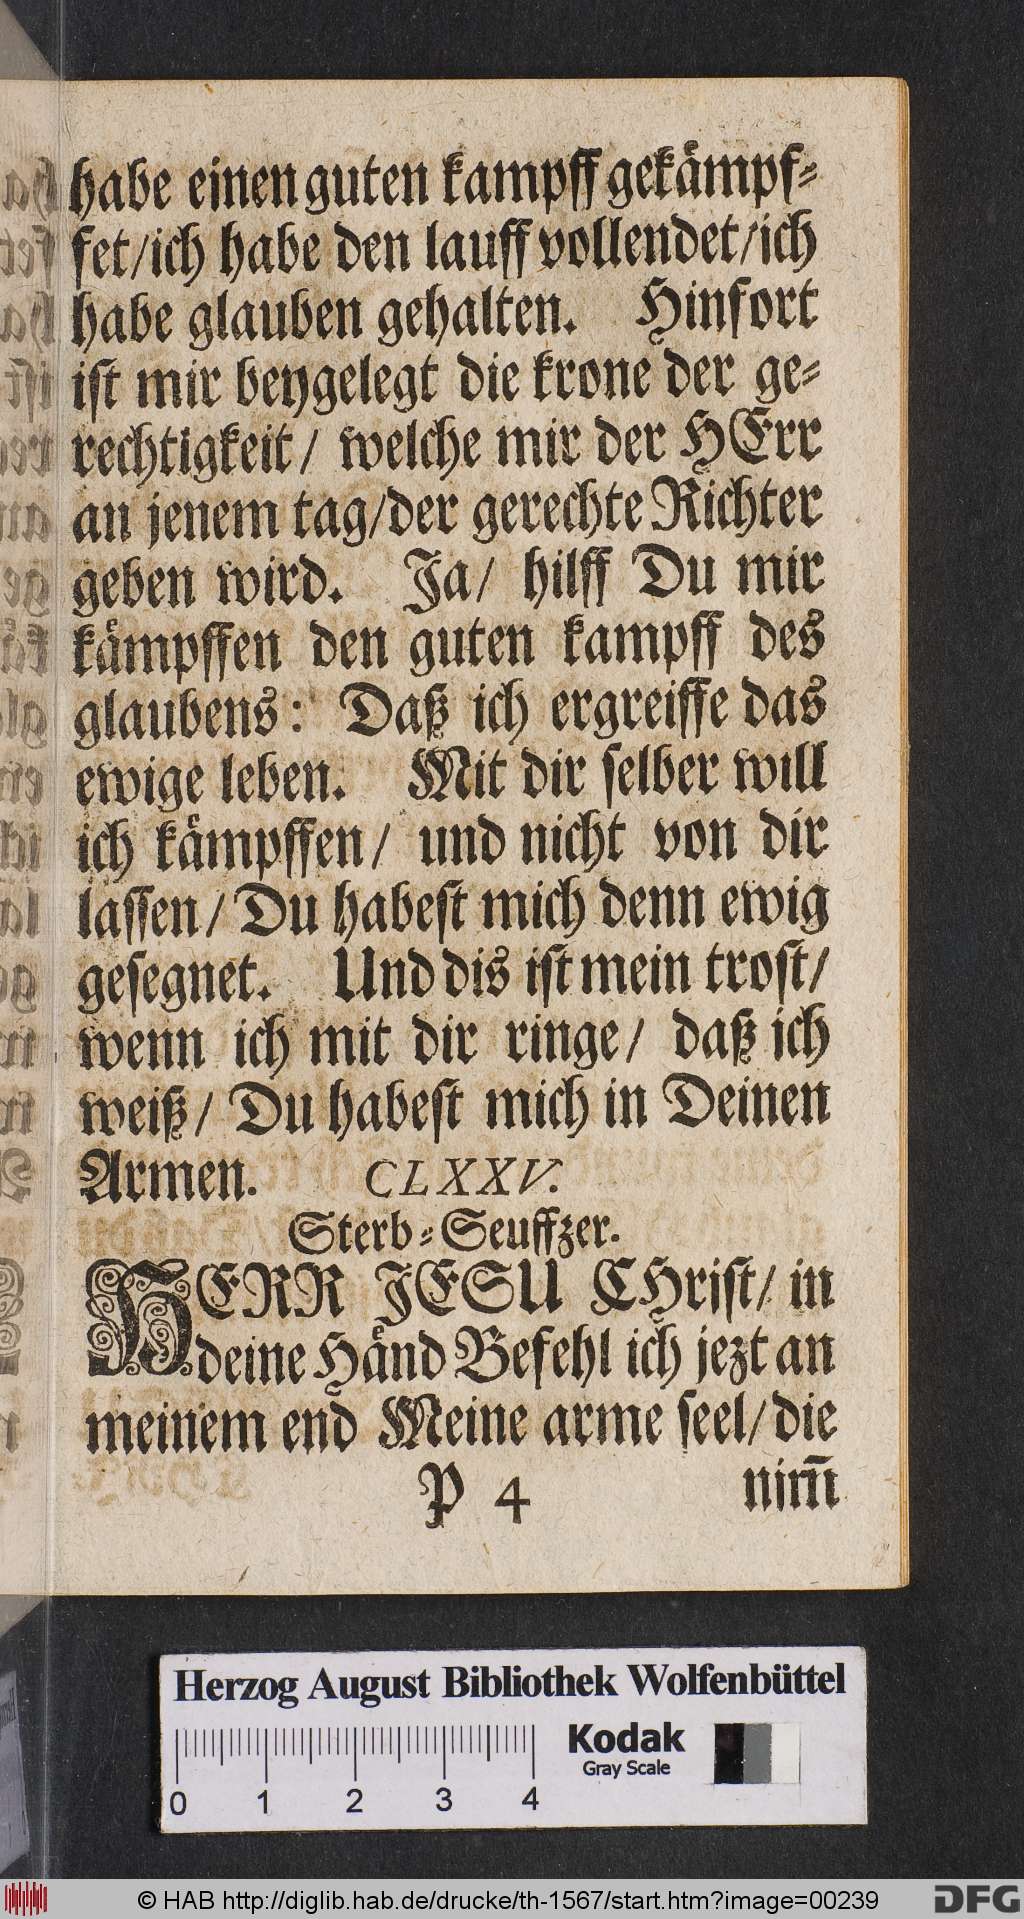 habe einen guten kampff gekämpf-
fet/ich habe den lauff vollendet/ich
habe glauben gehalten. Hinfort
ist mir beygelegt die krone der ge-
rechtigkeit/ welche mir der HErr
an jenem tag/der gerechte Richter
geben wird. Ja/ hilff Du mir
kämpffen den guten kampff des
glaubens: Daß ich ergreiffe das
ewige leben. Mit dir selber will
ich kämpffen/ und nicht von dir
lassen/ Du habest mich denn ewig
gesegnet. Und dis ist mein trost/
wenn ich mit dir ringe/ daß ich
weiß/ Du habest mich in Deinen
Armen. CLXXV.
Sterb-Seuffzer.
HERR JESU CHrist/ in
deine Händ Befehl ich jezt an
meinem end Meine arme seel/ die
P 4 nim̅
Herzog August Bibliothek Wolfenbüttel
Kodak
Gray Scale
0 1 2 3 4
© HAB http://diglib.hab.de/drucke/th-1567/start.htm?image=00239
DFG